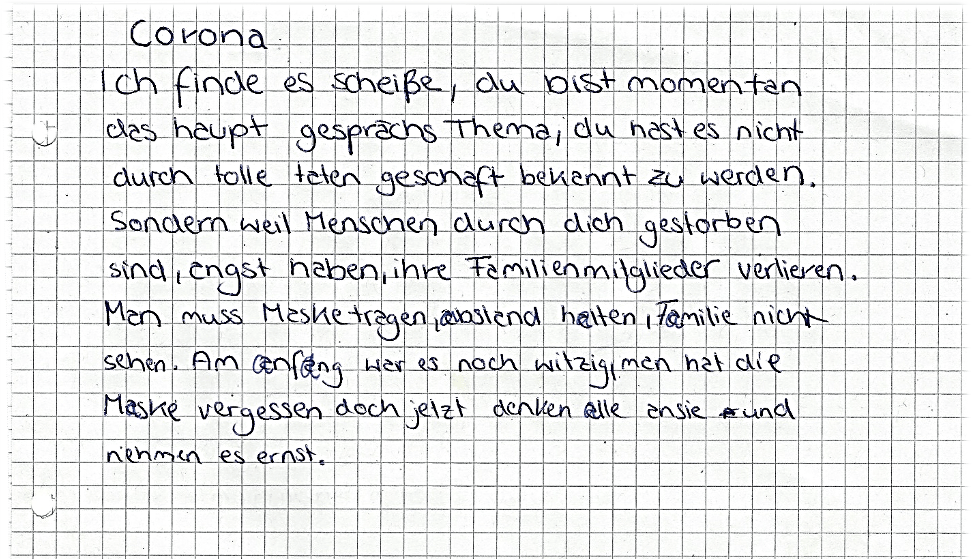 Corona
Ich finde es scheiße, du bist momentan
das haupt gesprächs Thema, du hast es nicht
durch tolle taten geschaft bekannt zu werden.
Sondern weil Menschen durch dich gestorben
sind, angst haben, ihre Familienmitglieder verlieren.
Man muss Maske tragen, abstand halten, Familie nicht
sehen. Am anfang war es noch witzig, man hat die
Maske vergessen doch jetzt denken alle ansie und
niehmen es ernst.